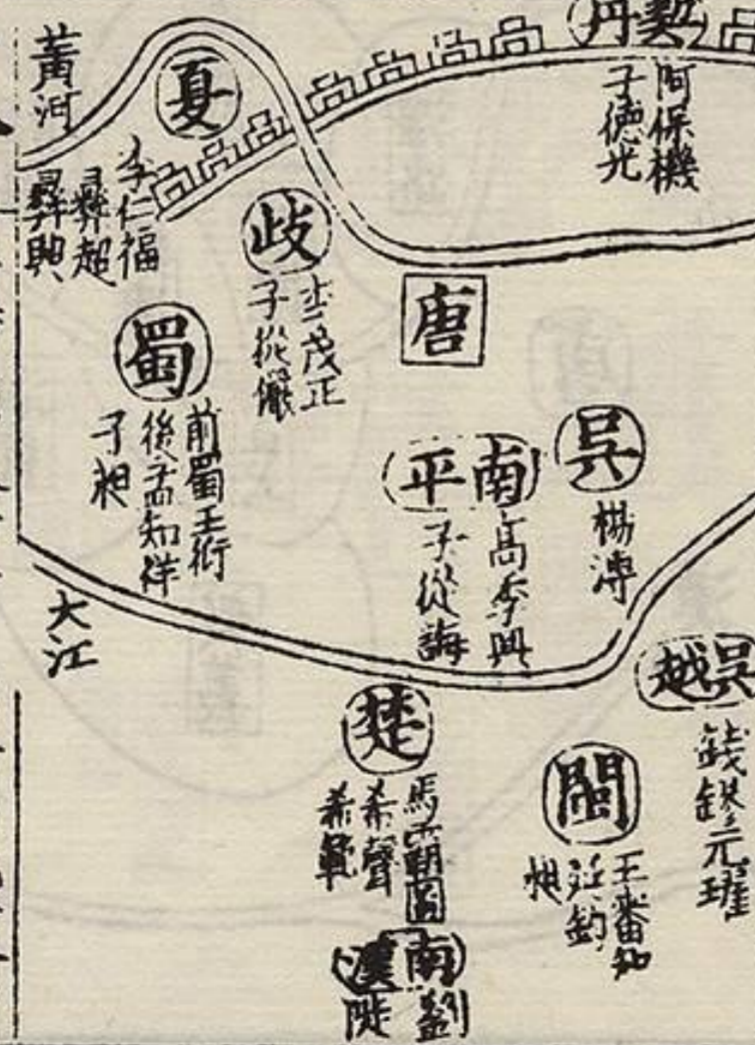 契丹
阿保機
子德光
黃河
夏
李仁福
彝超
彝興
歧
李茂正
子從儼
唐
蜀
前蜀王衍
後孟知祥
子昶
南平
高季興
子從誨
吳
楊溥
大江
吳越
錢鏐元瓘
楚
馬霸圖
希聲
希範
閩
王審知
延鈞
昶
南漢
劉陟